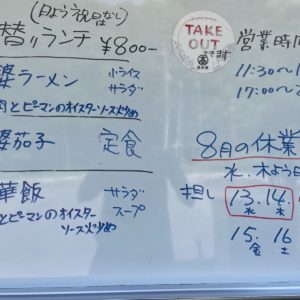 (日よう祝日はなし)
替リランチ ¥800-
婆ラーメン 小ライス
サラダ
肉とピーマンのオイスターソース炒め
婆茄子 定食
華飯 サラダ
スープ
とピーマンのオイスター
ソース炒め
TAKE
OUT
できます
営業時間
11:30~1
17:00~2
8月の休業
水.木よう日
担し 13.14.
水 木
15. 16
金 土